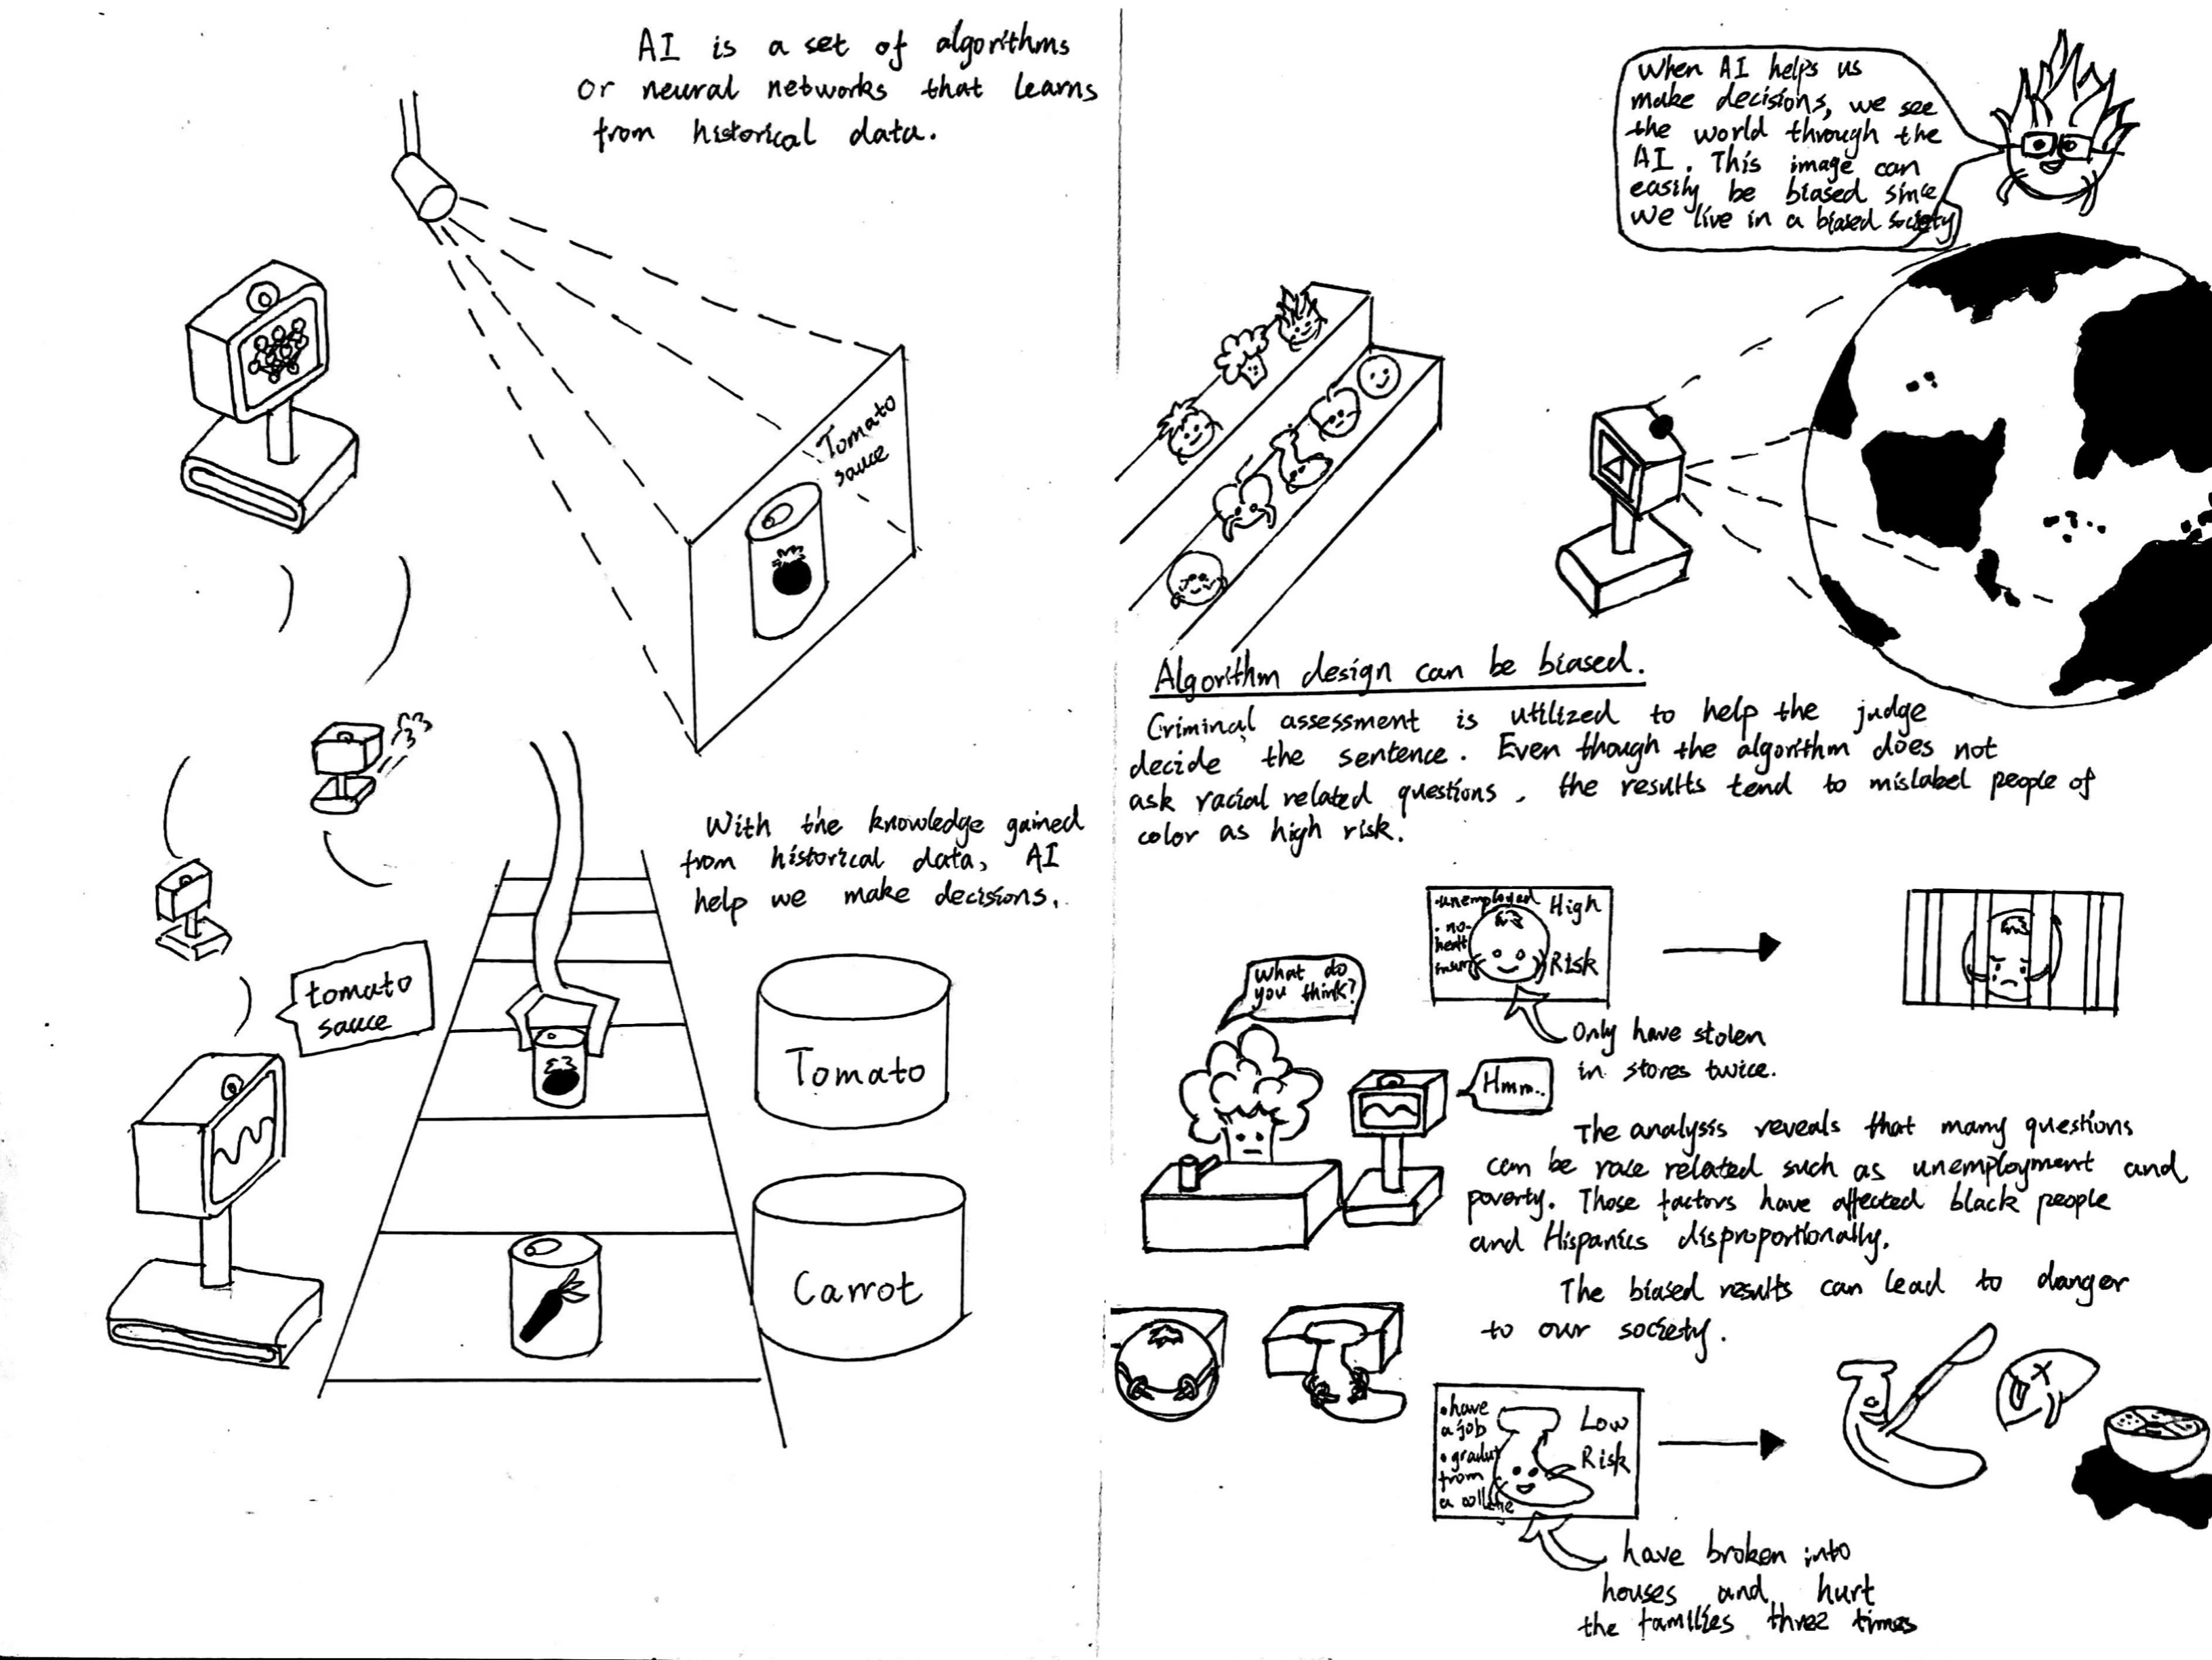 AI is a set of algorithms
or neural networks that learns
from historical data.
Tomato
sauce
With the knowledge gained
from historical data, AI
help we make decisions.
tomato
sauce
Tomato
Carrot
When AI helps us
make decisions, we see
the world through the
AI. This image can
easily be biased since
we live in a biased society
Algorithm design can be biased.
Criminal assessment is utilized to help the judge
decide the sentence. Even though the algorithm does not
ask racial related questions, the results tend to mislabel people of
color as high risk.
What do
you think?
Hmm..
•unemployed
•no-
health
High
Risk
Only have stolen
in stores twice.
The analysis reveals that many questions
can be race related such as unemployment and
poverty. Those factors have affected black people
and Hispanics disproportionally.
The biased results can lead to danger
to our society.
•have
a job
from
a college
Low
Risk
have broken into
houses and hurt
the families three times